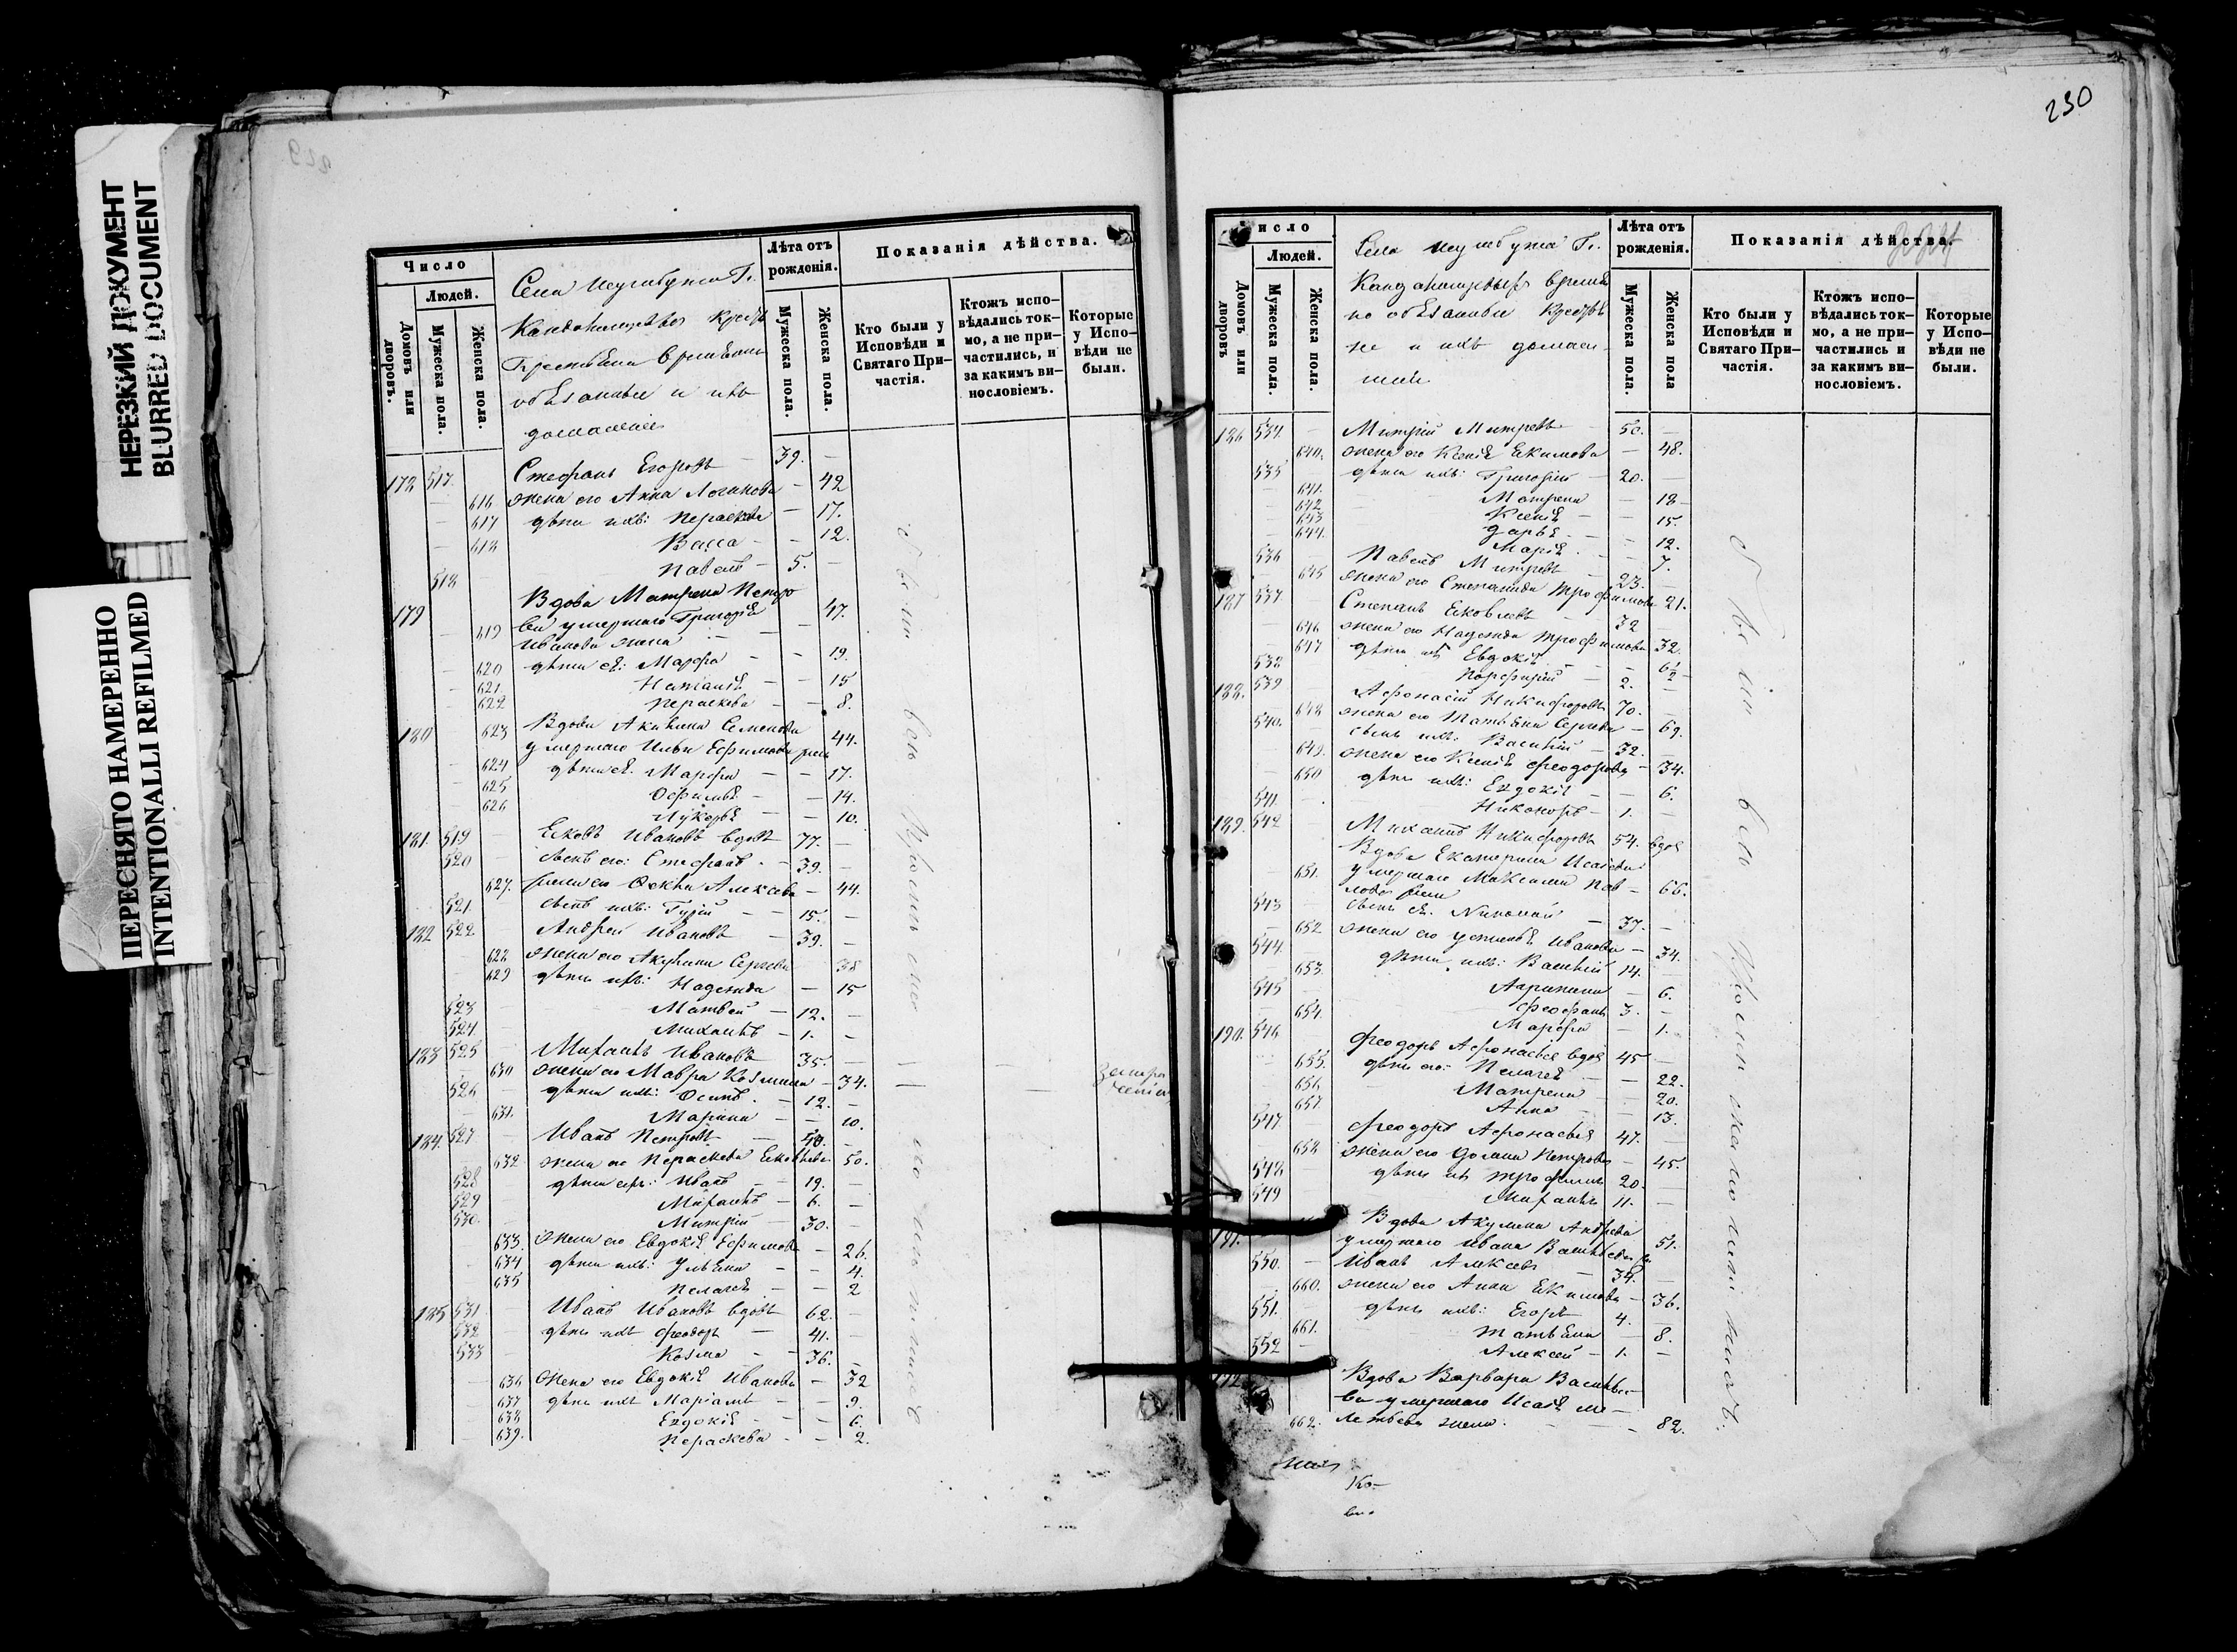 НЕРЕЗКИЙ ДОКУМЕНТ
BLURRED DOCUMENT
ПЕРЕСНЯТО НАМЕРЕННО
INTENTIONALLI REFILMED
229
Число
Людей.
Домовъ или дворовъ.
Мужеска пола.
Женска пола.
Села
обязанные и ихъ
домашніе
Лѣта отъ рожденія.
Мужеска пола.
Женска пола.
Показанія дѣйства.
Кто были у Исповѣди и Святаго Причастія.
Ктожъ исповѣдались токмо, а не причастились, и за какимъ винословіемъ.
Которые у Исповѣди не были.
178 517. Стефанъ Егоровъ — 39. —
616 жена его Анна Логинова — 42
617 дѣти ихъ: Пераскева — 17.
618 Васса — — 12.
518 Павелъ — 5. —
179 Вдова Матрена Петро
619 ва умершаго Григорія — 47.
Иванова жена
620 дѣти ея: Марфа — — 19.
621 Наталія — — 15
622 Пераскева — — 8.
180 623 Вдова Акилина Семенова 44.
умершаго Ильи Ефимова
624 дѣти ея: Марфа — — 17.
625 Офимья — — 14.
626 Лукерья — — 10.
181. 519 Яковъ Ивановъ вдовъ 77. —
520 сынъ его: Стефанъ — 39. —
627. жена его Фекла Алексѣева — 44.
521. сынъ ихъ: Гурій — 15. —
182 522 Андрей Ивановъ — 39. —
628 жена его Акулина Сергѣева 38
629 дѣти ихъ: Надежда — 15
523 Матвей — 12. —
524 Михаилъ — 1. —
183 525 Михаилъ Ивановъ 35. —
630 жена его Мавра Козмина — 34.
526 дѣти ихъ: Осипъ — 12. —
631. Марина — — 10.
184. 527 Иванъ Петровъ —
632 жена его Пераскева Яковлева 50.
528 дѣти ихъ: Иванъ — 19. —
529 Михаилъ — 6. —
530. Митрій — 30. —
633. жена его Евдокія Ефимова — 26.
634 дѣти ихъ: Ульяна — — 4.
635 Пелагея — — 2
185 531 Иванъ Ивановъ вдовъ 62. —
532 дѣти ихъ Феодоръ — 41. —
533 Козма — — 36. —
636 жена его Евдокія Иванова — 32
637 дѣти ихъ Маріамъ — — 9.
638 Евдокія — — 6.
639. Пераскева — — 2.
230
Число
Людей.
Домовъ или дворовъ
Мужеска пола.
Женска пола.
Села
но обязанные
не и ихъ домаш-
ніе
Лѣта отъ рожденія.
Мужеска пола.
Женска пола
Показанія дѣйства.
Кто были у Исповѣди и Святаго Причастія.
Ктожъ исповѣдались токмо, а не причастились и за какимъ винословіемъ.
Которые у Исповѣди не были.
186 534. — Митрій Митревъ — 50. —
640. жена его Ксенія Екимова — 48.
535 дѣти ихъ: Григорій — 20. —
641. Матрена — 18
642 Ксенія — — 15.
643 Дарья — — 12.
644. Марія — — 7.
536 Павелъ Митревъ — 23. —
645 жена его Степанида Трофимова 21.
187 537 Степанъ Яковлевъ — 32
646 жена его Надежда Трофимова 32.
647 дѣти ихъ Евдокія — — 6½
538 Порфирій — 2. —
188. 539 Афонасій Никифоровъ 70. —
648 жена его Татьяна Сергѣева — 69.
540. сынъ ихъ: Василій — 32. —
649. жена его Ксенія Феодорова — 34.
650 дѣти ихъ: Евдокія — 6.
541. Никоноръ — 1. —
189. 542 Михаилъ Никифоровъ 54. вдов
Вдова Екатерина Исаева
651. умершаго Максима Пав — 66.
лова жена
543 сынъ ея. Николай — 37. —
652 жена его Устинья Иванова — 34.
544. дѣти ихъ: Василій 14. —
653. Агрипина — 6.
545 Феофанъ 3. —
654. Марфа — 1.
190. 546 Феодоръ Афонасьевъ вдов 45 —
655. дѣти его: Пелагея — — 22.
656. Матрена — 20.
657. Анна — 13.
547 Феодоръ Афонасьевъ 47. —
658 жена его Домна Петрова — 45.
548 дѣти ихъ Трофимъ 20. —
549 Михаилъ 11. —
191. Вдова Акулина Андреева
умершаго Ивана Васильева 51.
550. — Иванъ Алексѣевъ 34. —
660. жена его Анна Екимова — 36.
551. дѣти ихъ: Егоръ — 4. —
661. Татьяна — 8.
552 Алексей — 1. —
Вдова Варвара Василье-
ва умершаго Исая
662. жена — 82.